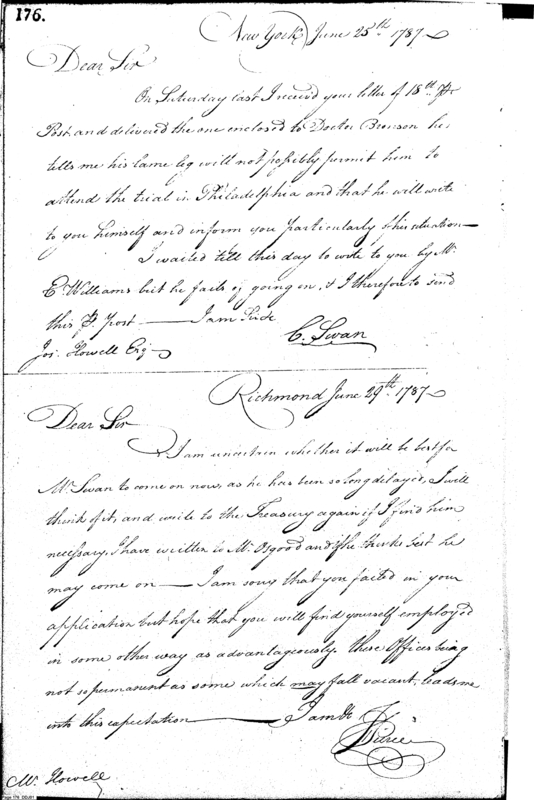 176.
New York June 25th 1787
Dear Sir
On Saturday last I receivd your letter of 18th Pr
Post and delivered the one enclosed to Doctor Bronson he
tells me his lame leg will not possibly permit him to
attend the trial in Philadelphia and that he will write
to you himself and inform you particularly of his situation—
I waited till this day to write to you by Mr
E Williams but he fails of going on, & I therefore to send
this Pr Post — I am Sick
C. Swan
Jos. Howell Esq
Richmond June 29th 1787
Dear Sir
I am uncertain whether it will be best for
Mr Swan to come on now, as he has been so long delayed, I will
think of it, and write to the Treasury again if I find him
necessary. I have written to Mr Osgood and if he thinks best he
may come on — I am sorry that you failed in your
application but hope that you will find yourself employed
in some other way as advantageously these Offices being
not so permanent as some which may fall vacant, leads me
into this expectation — I am &
J Pierce
Mr Howell